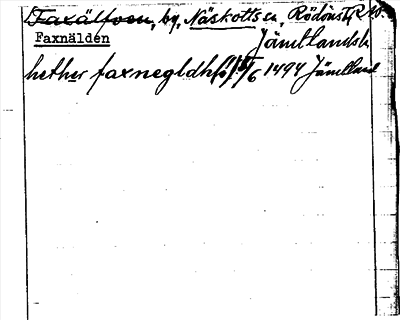 Faxälfven, by, Näskotts sn, Rödöns
Faxnäldén
Jämtlands
hether faxnegldh 1494 Jämtland